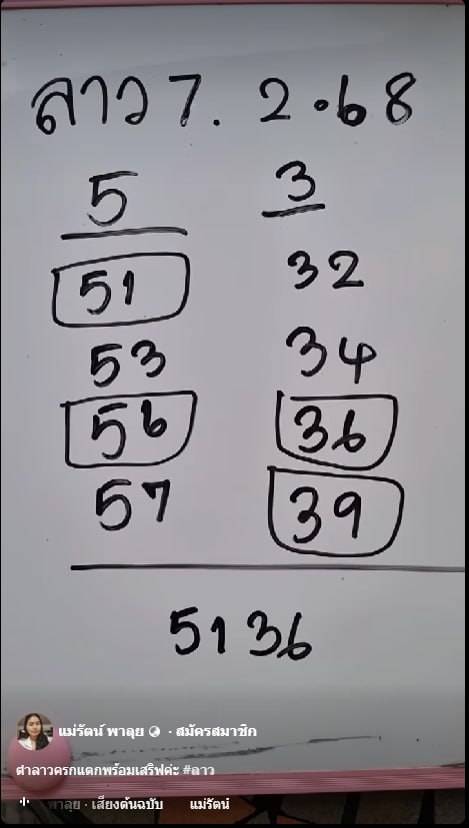 ลาว 7. 2.68
5 3
51 32
53 34
56 36
57 39
5136
แม่รัตน์ พาลุย · สมัครสมาชิก
ตำลาวครกแตกพร้อมเสริฟค่ะ #ลาว
พาลุย · เสียงต้นฉบับ แม่รัตน์